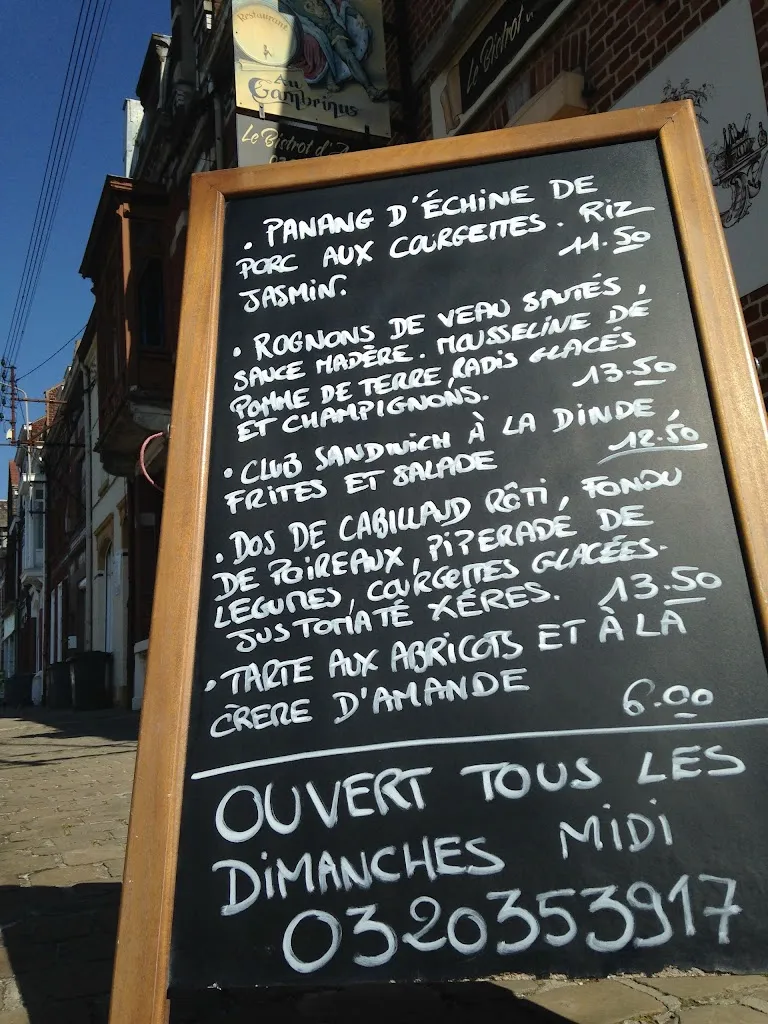 Restaurant
Au
Gambrinus
Le Bistrot d'
Le Bistrot
. PANANG D'ÉCHINE DE
PORC AUX COURGETTES. RIZ
JASMIN. 11.50
. ROGNONS DE VEAU SAUTÉS,
SAUCE MADÈRE. MOUSSELINE DE
POMME DE TERRE, RADIS GLACÉS
ET CHAMPIGNONS. 13.50
. CLUB SANDWICH À LA DINDE,
FRITES ET SALADE 12.50
. DOS DE CABILLAUD RÔTI, FONDU
DE POIREAUX, PIPERADE DE
LEGUMES, COURGETTES GLACÉES.
JUS TOMATÉ XÉRES. 13.50
. TARTE AUX ABRICOTS ET À LA
CRÈRE D'AMANDE 6.00
OUVERT TOUS LES
DIMANCHES MIDI
0320353917